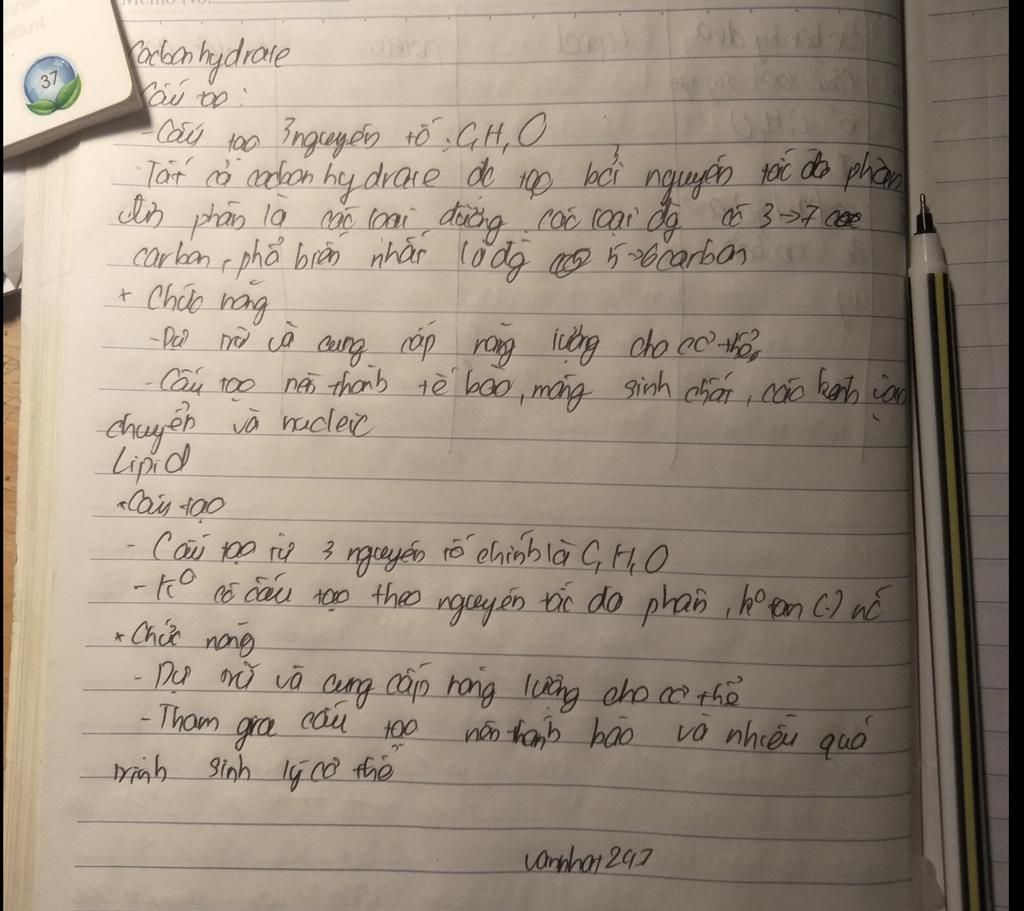 37
Cacbonhydrate
Cấu tạo:
- Cấu tạo 3 nguyên tố: C, H, O
- Tất cả cacbonhydrate đc tạo bởi nguyên tắc đa phân
đơn phân là các loại đường. các loại đg có 3→7
carbon, phổ biến nhất là đg 5→6 carbon
+ Chức năng
- Dự trữ và cung cấp năng lượng cho cơ thể
- Cấu tạo nên thành tế bào, màng sinh chất, các kênh vận
chuyển và nucleic
Lipid
* Cấu tạo
- Cấu tạo từ 3 nguyên tố chính là C, H, O
- K⁰ có cấu tạo theo nguyên tắc đa phân, k⁰ tan (.) nc
* Chức năng
- Dự trữ và cung cấp năng lượng cho cơ thể
- Tham gia cấu tạo nên thành bào và nhiều quá
trình sinh lý cơ thể
vannhat247